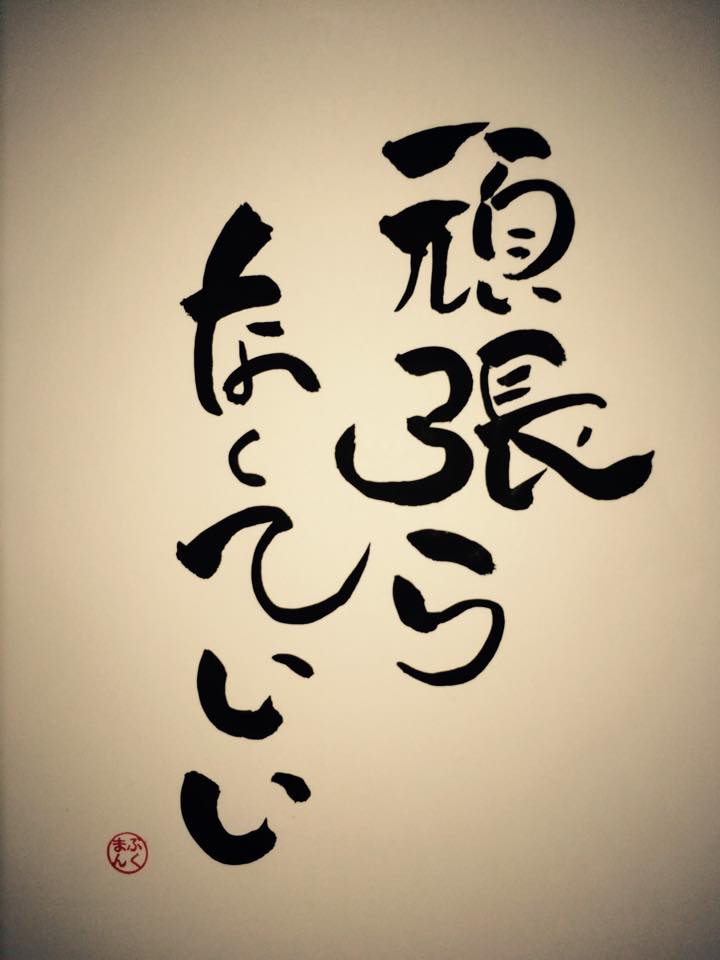 頑張ら
なくていい
ぶくまん